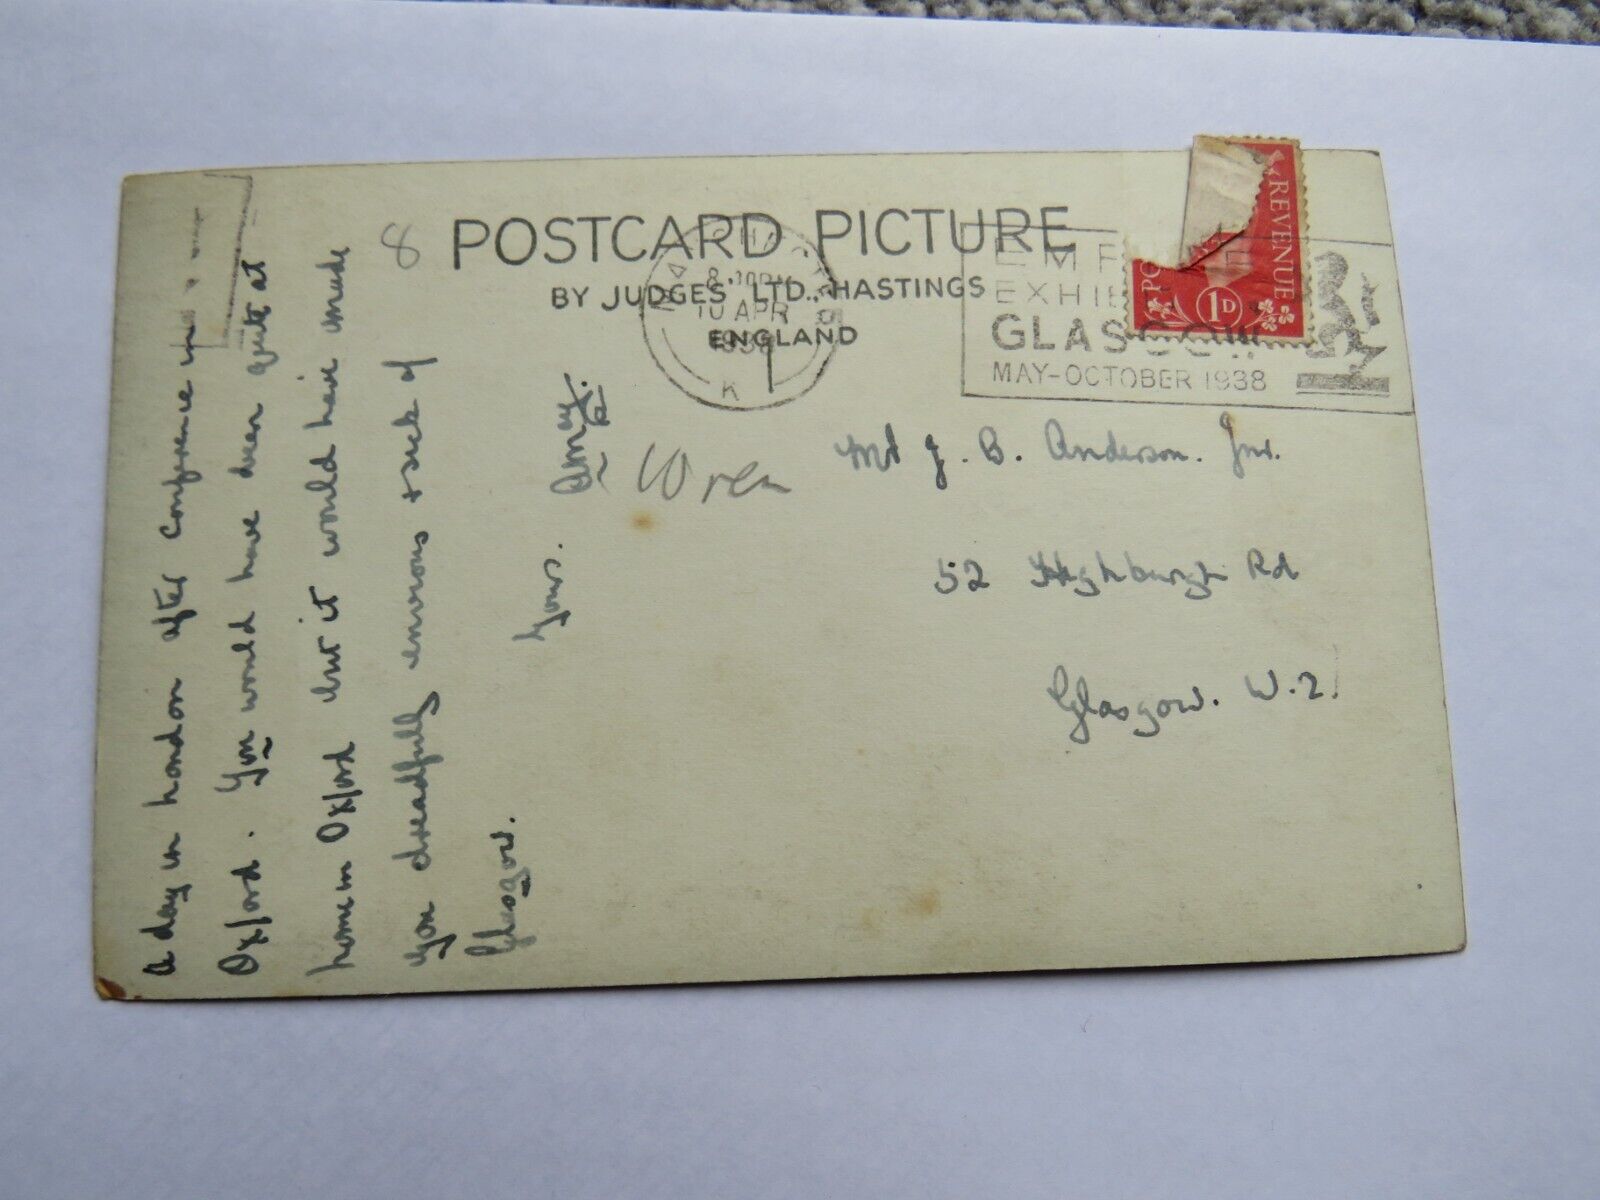 8
POSTCARD PICTURE
BY JUDGES' LTD., HASTINGS
ENGLAND
10 APR
1938
K
EXHI
GLASGOW
MAY-OCTOBER 1938
REVENUE
1D
A day in London after conference in
Oxford. You would have been quite at
home in Oxford but it would have made
you dreadfully envious & sick of
Glasgow.
Yours. Amy.
Wren
J. B. Anderson. Jnr.
52 Highburgh Rd
Glasgow. W.2.